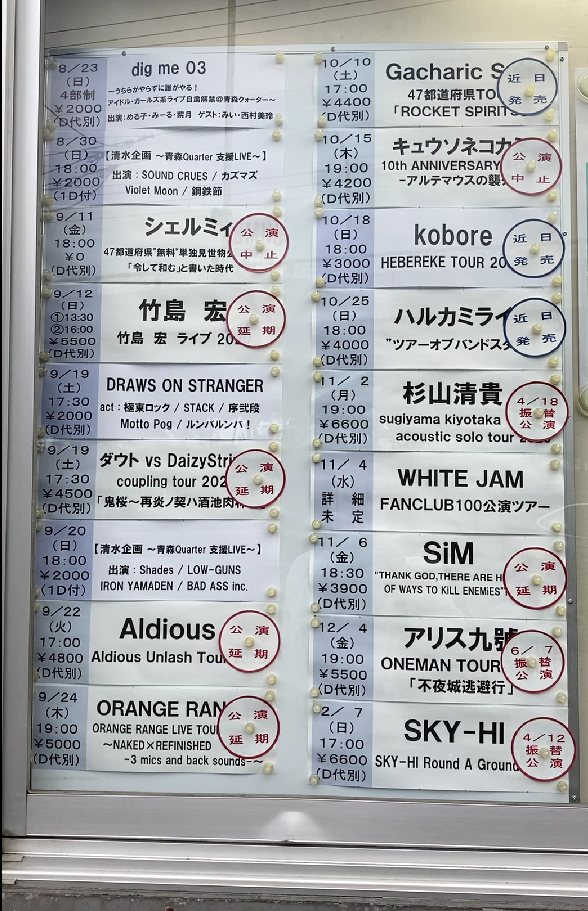 8/23
(日)
4部制
¥2000
(D代別)
dig me 03
〜うちらがやらずに誰がやる!
アイドル・ガールズ系ライブ自粛解禁@青森クォーター〜
出演:める子・みーる・紫月 ゲスト:みい・西村美玲
8/30
(日)
18:00
¥2000
(1D付)
【清水企画 〜青森Quarter 支援LIVE〜】
出演:SOUND CRUES / カズマズ
Violet Moon / 鋼鉄節
9/11
(金)
18:00
¥0
(D代別)
シェルミィ
47都道府県"無料"単独見世物公
「令して和む」と書いた時代
公演
中止
9/12
(日)
①13:30
②16:00
¥5500
(D代別)
竹島 宏
竹島 宏 ライブ 20
公演
延期
9/19
(土)
17:30
¥2000
(D代別)
DRAWS ON STRANGER
act:極東ロック / STACK / 序弐段
Motto Pog / ルンパルンパ!
9/19
(土)
17:30
¥4500
(D代別)
ダウト vs DaizyStri
coupling tour 202
「鬼桜〜再炎ノ契ハ酒池肉林
公演
延期
9/20
(日)
18:00
¥2000
(1D付)
【清水企画 〜青森Quarter 支援LIVE〜】
出演:Shades / LOW-GUNS
IRON YAMADEN / BAD ASS inc.
9/22
(火)
17:00
¥4800
(D代別)
Aldious
Aldious Unlash Tour
公演
延期
9/24
(木)
19:00
¥5000
(D代別)
ORANGE RAN
ORANGE RANGE LIVE TOUR
〜NAKED×REFINISHED
-3 mics and back sounds-〜
公演
延期
10/10
(土)
17:00
¥4400
(D代別)
Gacharic S
47都道府県TO
「ROCKET SPIRITS
近日
発売
10/15
(木)
19:00
¥4200
(D代別)
キュウソネコカミ
10th ANNIVERSARY
-アルテマウスの襲
公演
中止
10/18
(日)
18:00
¥3000
(D代別)
kobore
HEBEREKE TOUR 20
近日
発売
10/25
(日)
18:00
¥4000
(D代別)
ハルカミライ
"ツアーオブバンドスタ
近日
発売
11/ 2
(月)
19:00
¥6600
(D代別)
杉山清貴
sugiyama kiyotaka
acoustic solo tour 2
4/18
振替
公演
11/ 4
(水)
詳細
未定
WHITE JAM
FANCLUB100公演ツアー
11/ 6
(金)
18:30
¥3900
(D代別)
SiM
"THANK GOD,THERE ARE H
OF WAYS TO KILL ENEMiES"
公演
延期
12/ 4
(金)
19:00
¥5500
(D代別)
アリス九號
ONEMAN TOUR
「不夜城逃避行」
6/ 7
振替
公演
2/ 7
(日)
17:00
¥6600
(D代別)
SKY-HI
SKY-HI Round A Ground
4/12
振替
公演